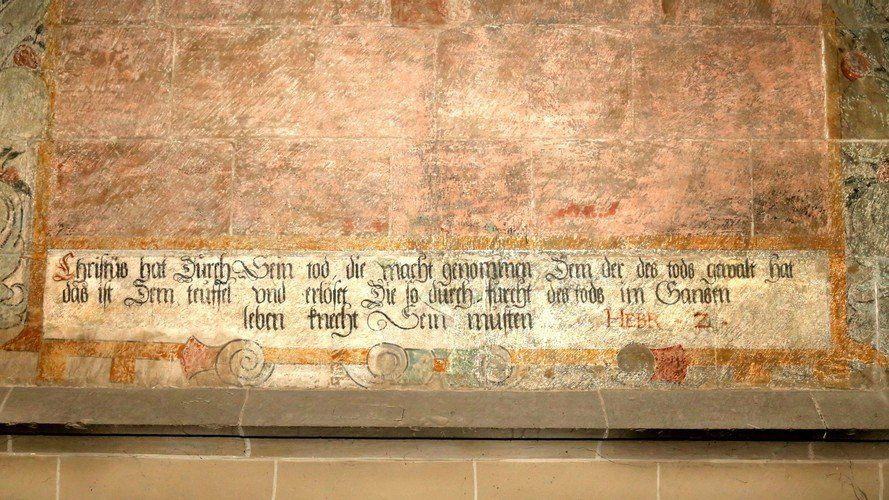 Christus hat Durch Sein tod die macht genommen Dem der des tods gewalt hat
das ist Dem teuffel vnd erloset Die so durch furcht des tods im Gantzen
leben knecht Sein musten HEBR - 2 -